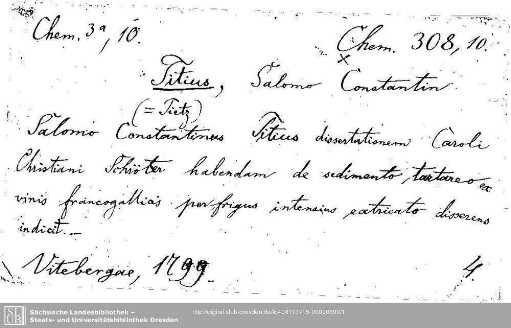 Chem. 3ª, 10.
Chem. 308, 10.
x
Titius, Salomo Constantin
(= Tietz)
Salomo Constantinus Titius dissertationem Caroli
Christiani Schröter habendam de sedimento tartareo ex
vinis francogallicis per frigus intensius extricato disserens
indicit. –
Vitebergae, 1799. 4.
Sächsische Landesbibliothek –
Staats- und Universitätsbibliothek Dresden